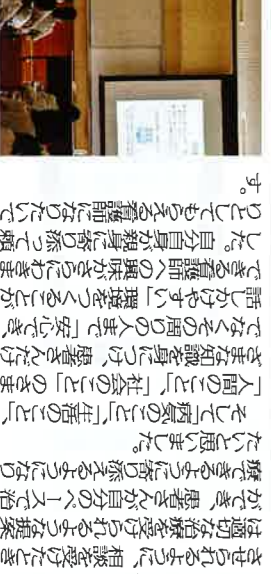 させられるように、相談を受けたとき
は適切な治療を受けられるような提案
ができ、患者さんが自分のペースで治
療できるように寄り添えるようになり
たいと思いました。
そして「病気のこと」、「生活のこと」、
「人間のこと」、「社会のこと」のさま
ざまな知識を身につけ、患者さんだけ
でなくその周りの人まで「安心でき、
話しかけやすい」環境をつくることが
できる看護師への興味がさらにわきま
した。自分自身が親身に寄り添って頼
りとしてもらえる看護師になりたいで
す。